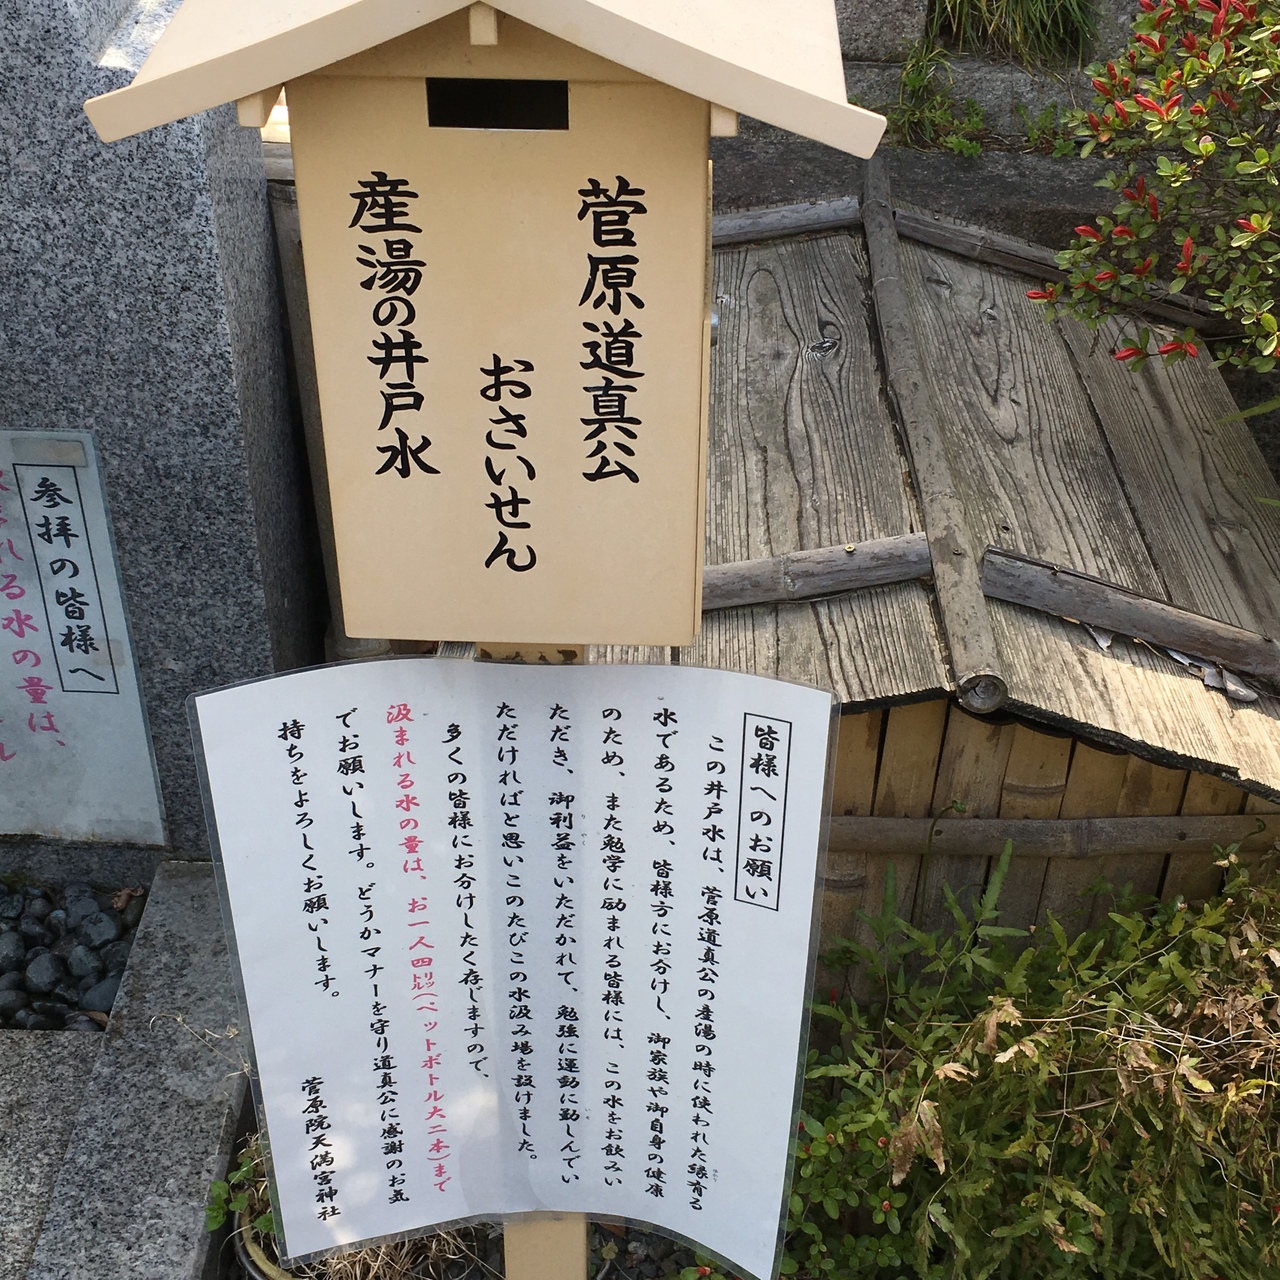 菅原道真公
おさいせん
産湯の井戸水
皆様へのお願い
この井戸水は、菅原道真公の産湯の時に使われた縁有る
水であるため、皆様方にお分けし、御家族や御自身の健康
のため、また勉学に励まれる皆様には、この水をお飲みい
ただき、御利益をいただかれて、勉強に運動に勤しんでい
ただければと思いこのたびこの水汲み場を設けました。
多くの皆様にお分けしたく存じますので、
汲まれる水の量は、お一人四㍑(ペットボトル大二本)まで
でお願いします。どうかマナーを守り道真公に感謝のお気
持ちをよろしくお願いします。
菅原院天満宮神社
参拝の皆様へ
まれる水の量は、